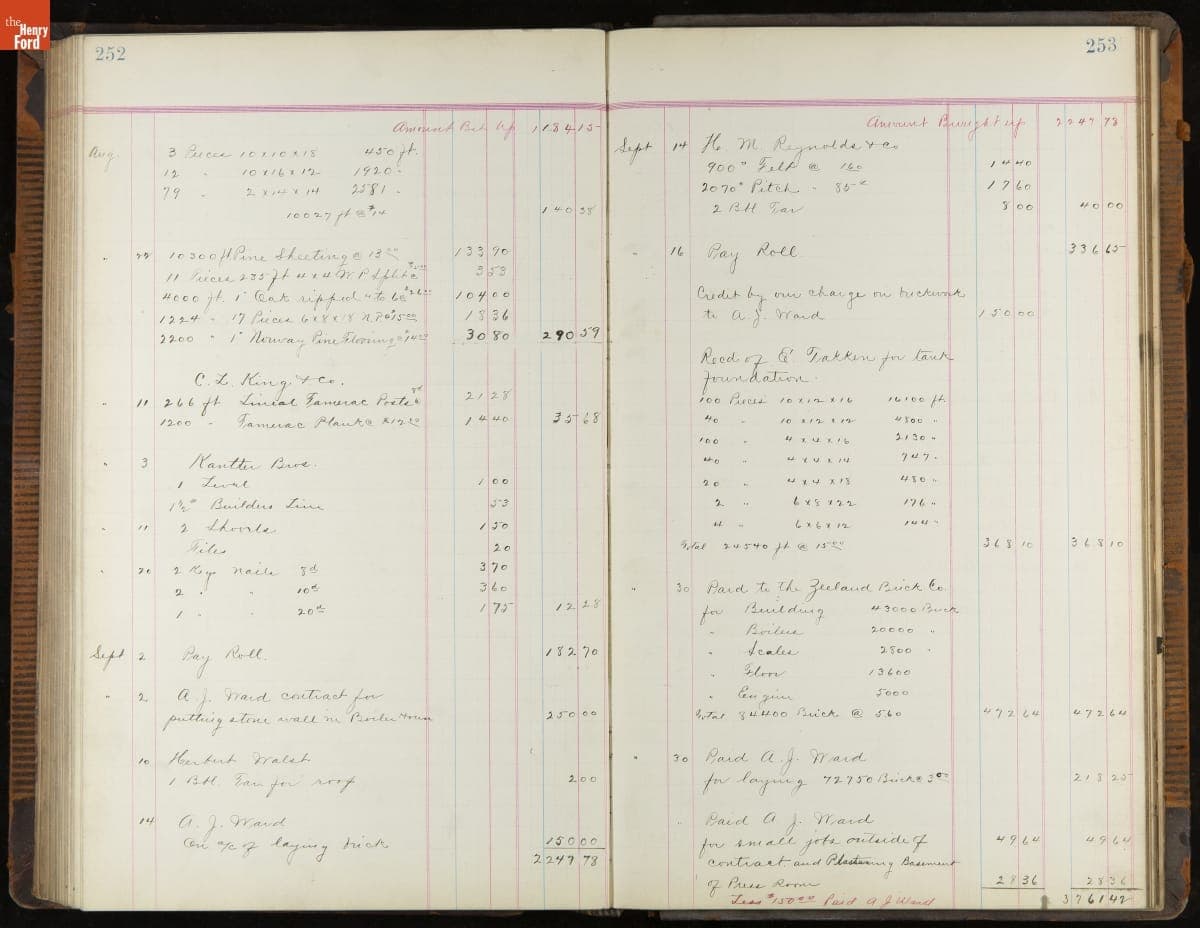 the
Henry
Ford
252
Amount Bt Up 1184 15
Aug. 3 Pieces 10x10x18 450 ft.
12 " 10x16x12 1920 "
79 " 2x14x14 2581 "
10027 ft @ $14 140 38
" 22 10300 ft Pine Sheeting @ 13 00 133 90
11 Pieces 235 ft 4x4 W P @ 15 00 3 53
4000 ft. 1" Oak ripped to 6 @ $26 00 104 00
1224 " 17 Pieces 6x8x18 N.P. @ 15 00 18 36
2200 " 1" Norway Pine Flooring @ $14 00 30 80 290 59
C. L. King & Co.
" 11 266 ft Lineal Tamerac Posts @ 8¢ 21 28
1200 " Tamerac Plank @ $12 00 14 40 35 68
" 3 Kantter Bros.
1 Level 1 00
1½# Builders Line 53
" 11 2 Shovels 1 50
Files 20
" 20 2 Kegs Nails 8d 3 70
2 " " 10d 3 60
1 " " 20d 1 75 12 28
Sept 2 Pay Roll. 182 70
" 2 A. J. Ward contract for
putting stone wall in Boiler room 250 00
10 Herbert Walsh
1 Bbl. Tar for roof 2 00
14 A. J. Ward
On a/c of laying brick 150 00
2247 78
253
Amount Brought up 2247 78
Sept 14 H. M. Reynolds & Co
900# Felt @ 160 14 40
2070# Pitch " 85¢ 17 60
2 Bbl Tar 8 00 40 00
" 16 Pay Roll 336 65
Credit by our charge on brickwork
to A. J. Ward 150 00
Recd of E. Takken for tank
foundation.
100 Pieces 10x12x16 16100 ft.
40 " 10x12x12 4800 "
100 " 4x4x16 2130 "
40 " 4x4x14 747 "
20 " 4x4x18 480 "
2 " 6x8x22 176 "
4 " 6x6x12 144 "
Total 24540 ft @ 15 00 368 10 368 10
" 30 Paid to the Zeeland Brick Co.
for Building 43000 Brick
" Boilers 20000 "
" Scales 2800 "
" Floor 13600
" Engine 5000
Total 84400 Brick @ 5 60 472 64 472 64
" 30 Paid A. J. Ward
for laying 72750 Brick @ 3 00 218 25
" Paid A J. Ward
for small jobs outside of 49 64 49 64
contract and Plastering Basement
of Press Room 28 36 28 36
Less $150 00 Paid A J Ward 3761 42